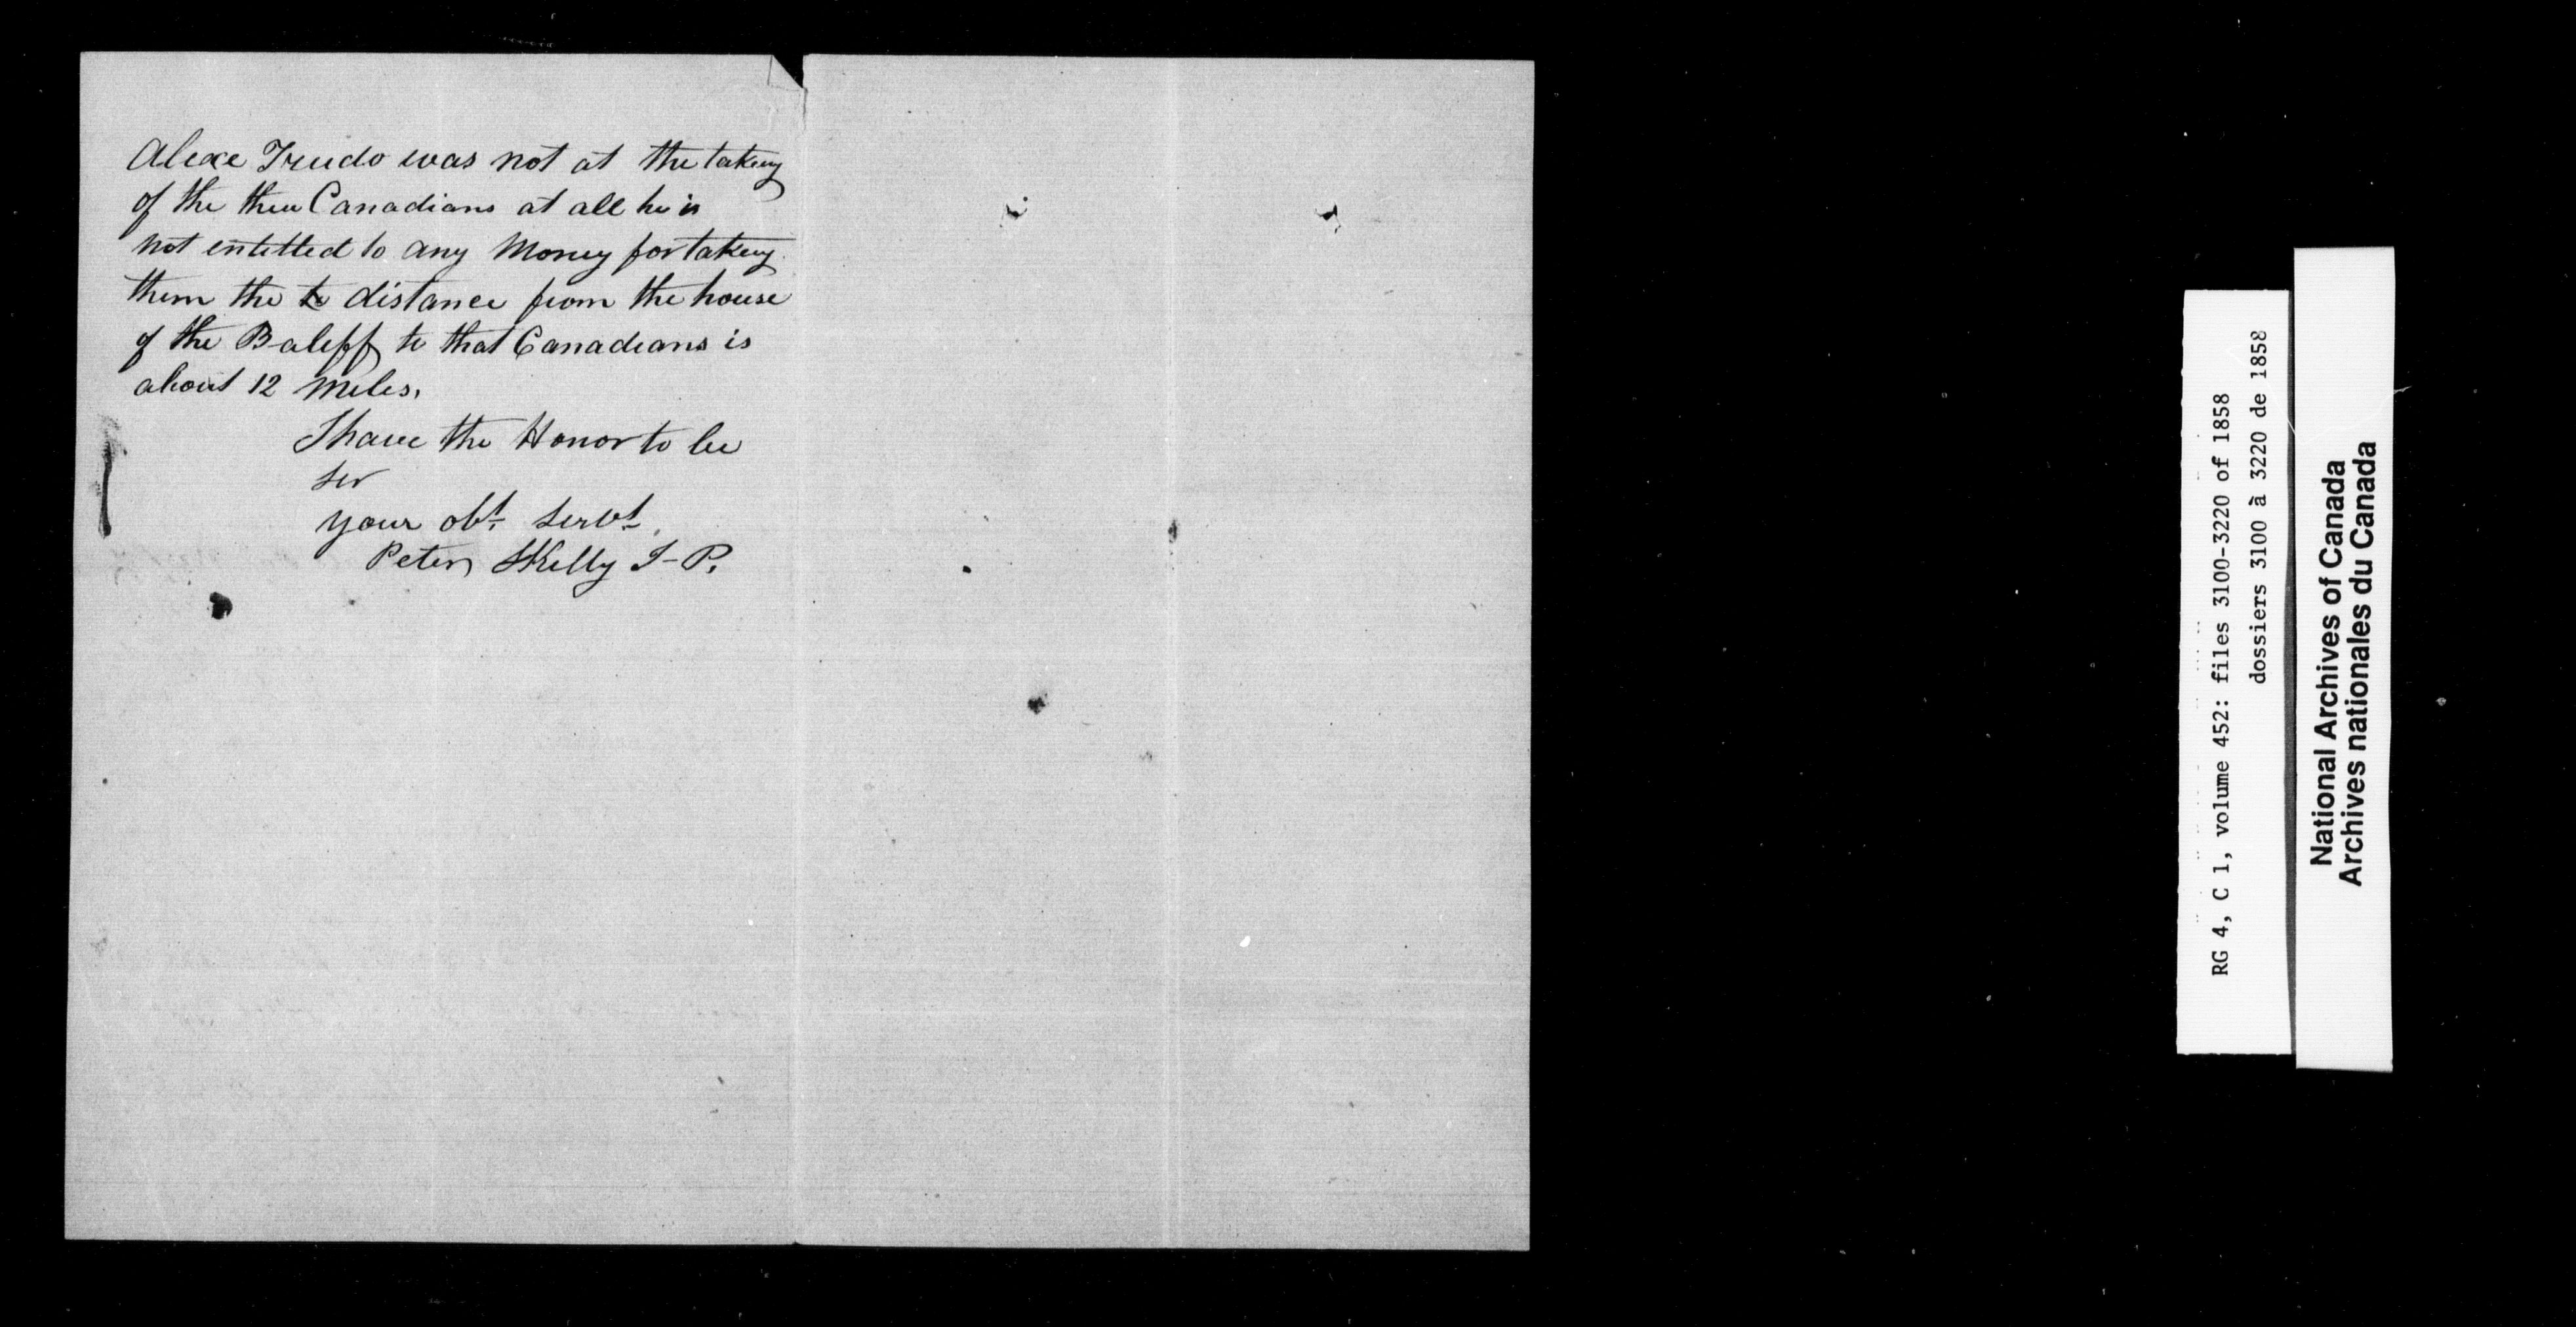 Alexe Trudo was not at the takeng
of the three Canadians at all he is
not entetled to any Money for takeng
them the to distance from the house
of the Baleff to that Canadeans is
about 12 Meles.
I have the Honor to be
ser
your obt servt
Peter Skelly J-P.
RG 4, C 1, volume 452: files 3100-3220 of 1858
dossiers 3100 à 3220 de 1858
National Archives of Canada
Archives nationales du Canada